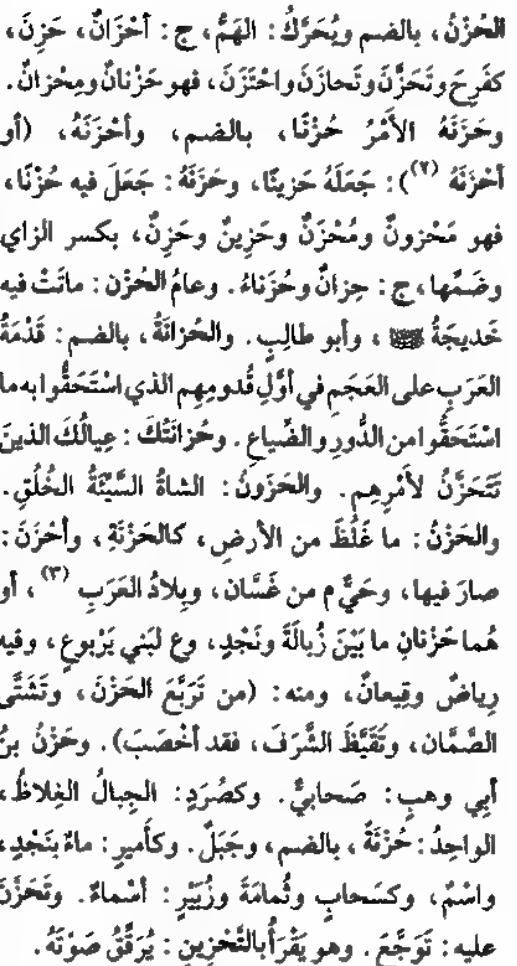 الحُزْنُ، بالضم ويُحَرَّكُ: الهَمُّ، ج: أحْزَانٌ، حَزِنَ،
كفَرِحَ وتَحَزَّنَ وتَحازَنَ واحْتَزَنَ، فهو حَزْنانٌ ومِحْزانٌ.
وحَزَنَهُ الأَمْرُ حُزْنًا، بالضم، وأحْزَنَهُ، (أو
أحْزَنَهُ (٢)): جَعَلَهُ حَزِينًا، وحَزَنَهُ: جَعَلَ فيه حُزْنًا،
فهو مَحْزونٌ ومُحْزَنٌ وحَزِينٌ وحَزِنٌ، بكسر الزاي
وضَمِّها، ج: حِزانٌ وحُزَناءُ. وعامُ الحُزْنِ: ماتَتْ فيه
خَديجَةُ ﷺ، وأبو طالِبٍ. والحُزانَةُ، بالضم: قَدْمَةُ
العَرَبِ على العَجَمِ في أوَّلِ قُدومِهِم الذي اسْتَحَقُّوا به ما
اسْتَحَقُّوا من الدُّورِ والضِّياعِ. وحُزانَتُكَ: عِيالُكَ الذينَ
تَتَحَزَّنُ لأَمْرِهِم. والحَزونُ: الشاةُ السَّيِّئَةُ الخُلُقِ.
والحَزْنُ: ما غَلُظَ من الأرضِ، كالحَزْنَةِ، وأحْزَنَ:
صارَ فيها، وحَيٌّ م من غَسَّان، وبِلادُ العَرَبِ (٣)، أو
هُما حَزْنانِ ما بَيْنَ زُبالَةَ ونَجْدٍ، وع لبَني يَرْبوعٍ، وفيه
رِياضٌ وقِيعانٌ، ومنه: (من تَرَبَّعَ الحَزْنَ، وتَشَتَّى
الصَّمَّان، وتَقَيَّظَ الشَّرَفَ، فقد أخْصَبَ). وحَزْنُ بنُ
أبِي وهبٍ: صَحابيٌّ. وكصُرَدٍ: الجِبالُ الغِلاظُ،
الواحِدُ: حُزْنَةٌ، بالضم، وجَبَلٌ. وكأَميرٍ: ماءٌ بنَجْدٍ،
واسْمٌ، وكسَحابٍ وثُمامَةَ وزُبَيْرٍ: أسْماءٌ. وتَحَزَّنَ
عليه: تَوَجَّعَ. وهو يَقْرَأُ بالتَّحْزِينِ: يُرَقِّقُ صَوْتَهُ.